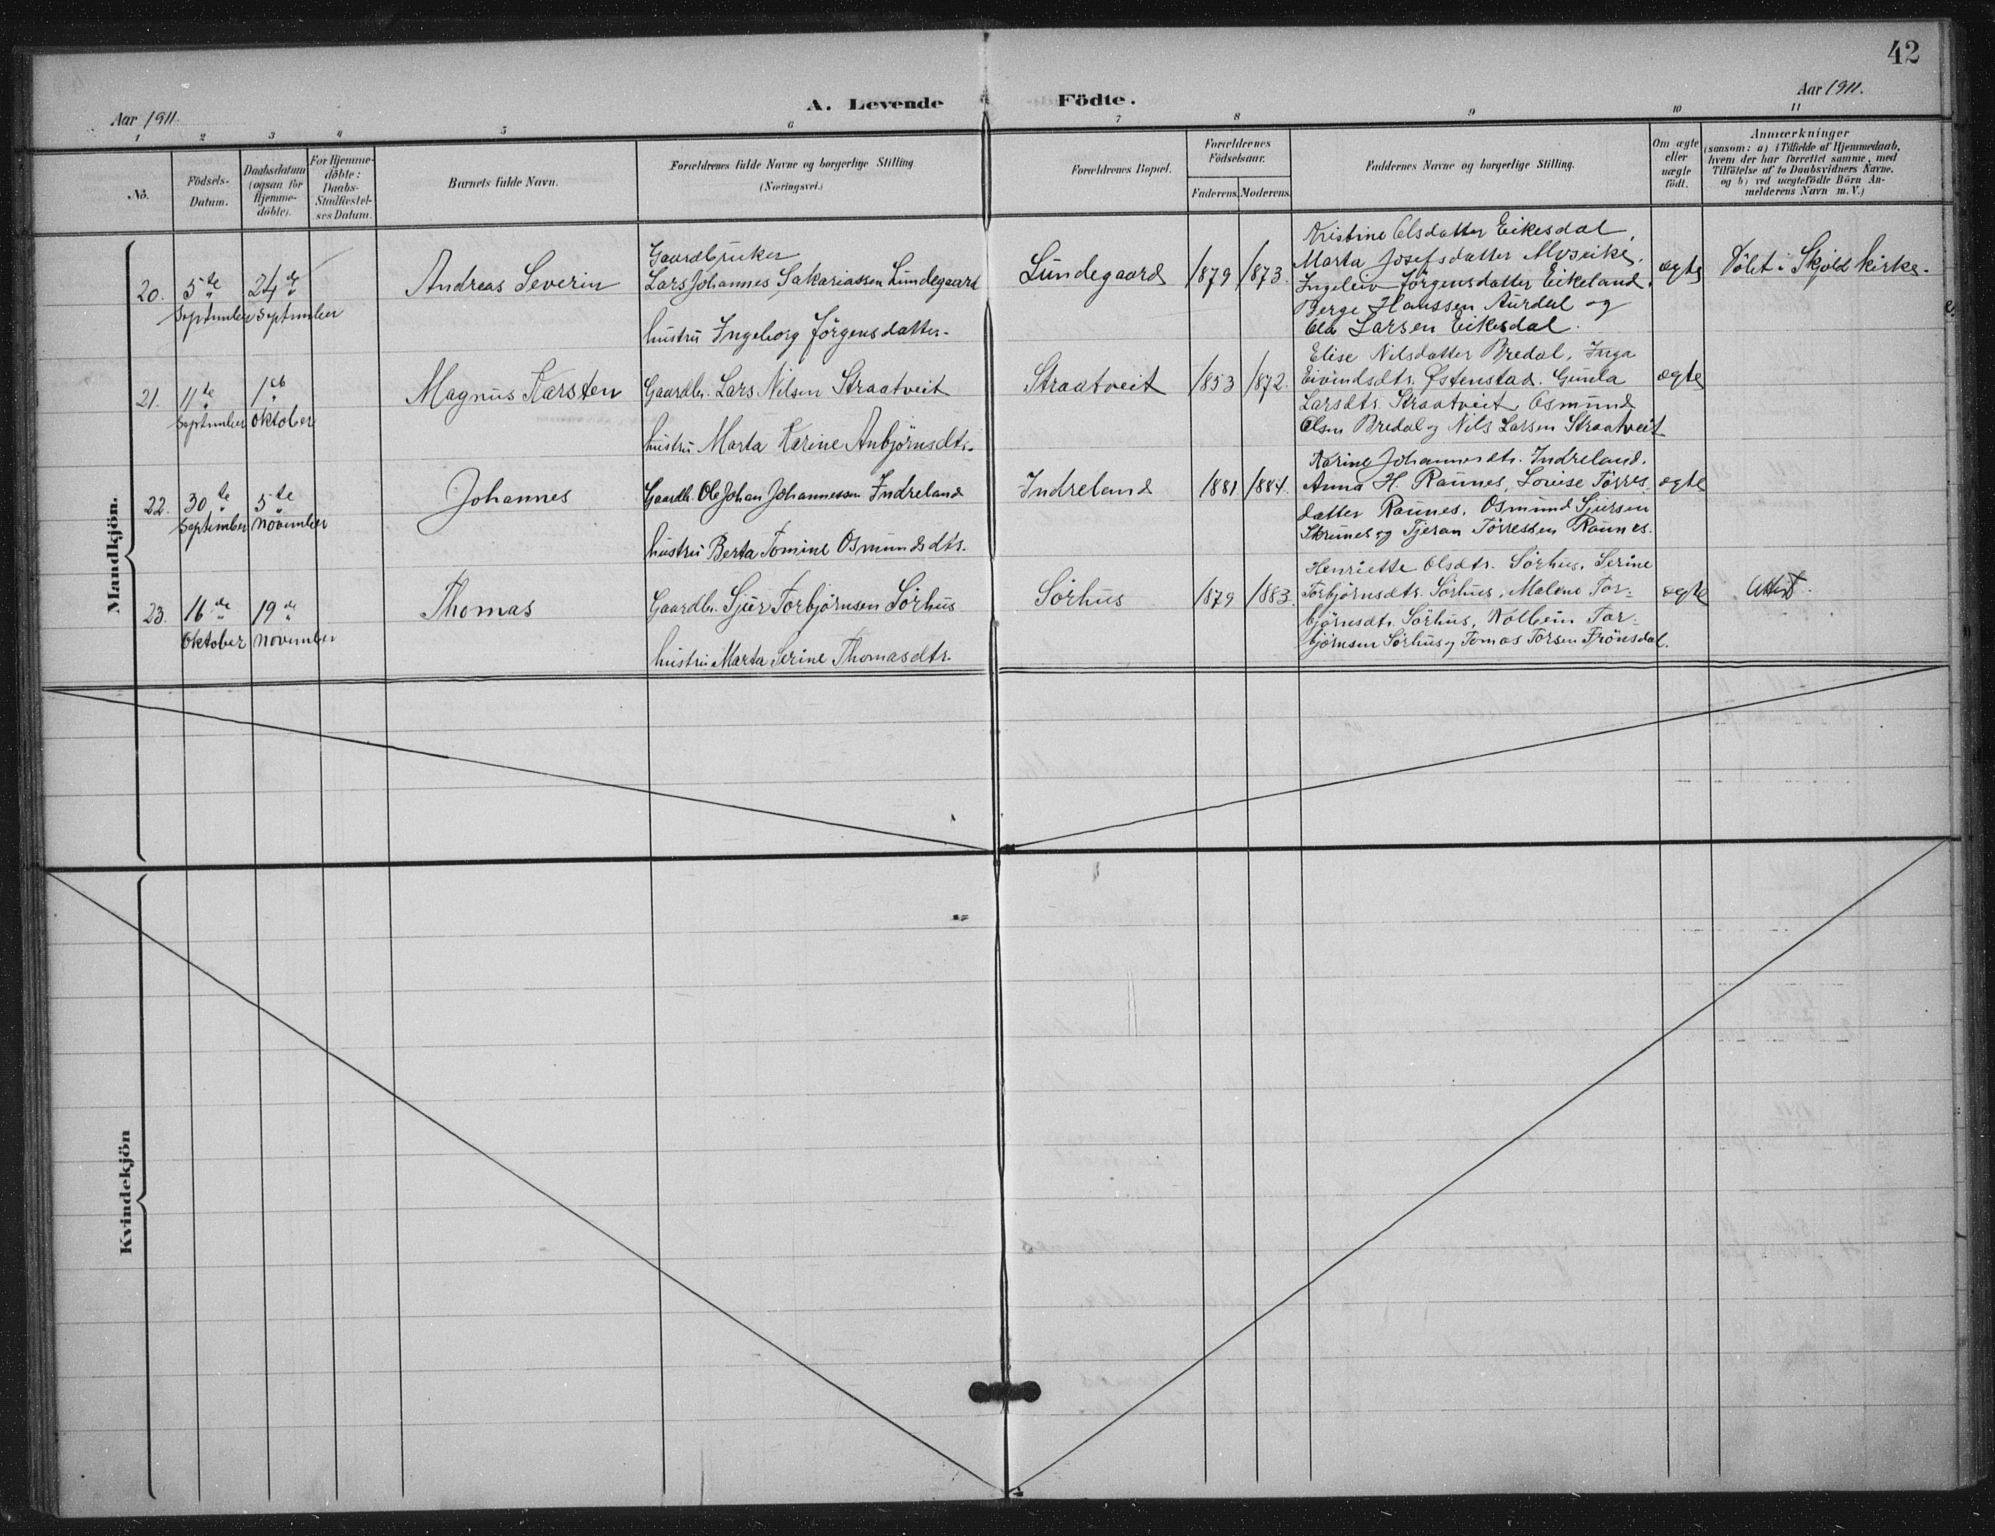 42
Aar 1911.
A. Levende Födte.
Aar 1911.
1 2 3 4 5 6 7 8 9 10 11
No.
Födsels-
Datum.
Daabsdatum
(ogsaa for
Hjemme-
döbte).
For Hjemme-
döbte:
Daabs-
Stadfæstel-
ses Datum.
Barnets fulde Navn.
Forældrenes fulde Navne og borgerlige Stilling.
(Næringsvei.)
Forældrenes Bopæl.
Forældrenes
Födselsaar.
Faderens. Moderens.
Faddernes Navne og borgerlige Stilling.
Om ægte
eller
uægte
født.
Anmærkninger
(saasom: a) i Tilfælde af Hjemmedaab,
hvem der har forrettet samme, med
Tilföielse af to Daabsvidners Navne,
og b) ved uægtefödte Börn An-
melderens Navn m. V.)
Mandkjön.
20.
5te
September
24de
September
Andreas Severin
Gaardbruker
Lars Johannes Sakariassen Lundegaard
hustru Ingeborg Jörgensdatter.
Lundegaard
1879 1873.
Kristine Olsdatter Eikesdal,
Marta Josefsdatter Mosvike,
Ingeleiv Jörgensdatter Eikeland,
Berge Hanssen Aurdal og
Ola Larsen Eikesdal.
ægte
Döbt i Skjold kirke.
21.
11te
September
1ste
Oktober
Magnus Karsten
Gaardbr. Lars Nilsen Straatveit
hustru Marta Karine Anbjörnsdtr.
Straatveit
1853 1872.
Elise Nilsdatter Bredal, Inga
Eivindsdtr. Østenstad. Gunla
Larsdtr. Straatveit, Osmund
Olsen Bredal og Nils Larsen Straatveit
ægte
22.
30te
September
5te
November
Johannes
Gaardb. Ole Johan Johannessen Indreland
hustru Berta Tomine Osmundsdtr.
Indreland
1881 1884.
Karine Johannesdtr. Indreland,
Anna H. Raunes, Lovise Törres
datter Raunes, Osmund Sjursen
Skrunes og Tjeran Törressen Raunes.
ægte
23.
16de
Oktober
19de
November
Thomas
Gaardbr. Sjur Torbjørnsen Sörhus
hustru Marta Serine Thomasdtr.
Sörhus
1879 1883.
Henriette Olsdtr. Sörhus, Serine
Torbjørnsdtr. Sörhus, Malene Tor-
björnsdtr. Sörhus, Kolbein Tor-
bjørnsen Sörhus og Tomas Torsen Frönsdal.
ægte
Attest.
Kvindekjön